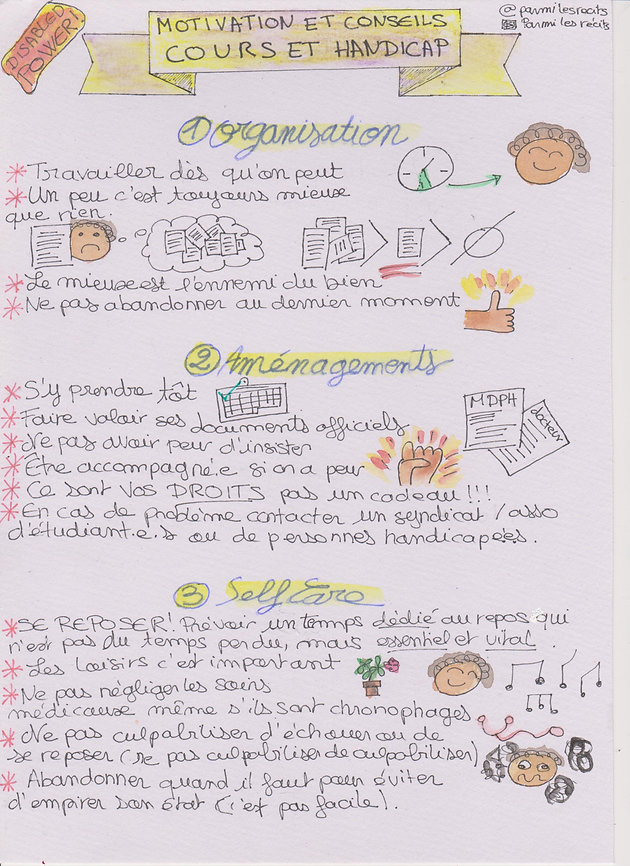 DISABLED
POWER!
MOTIVATION ET CONSEILS
COURS ET HANDICAP
@parmilesrecits
Parmi les récits
1 Organisation
* Travailler dès qu'on peut
* Un peu c'est toujours mieux
que rien.
* Le mieux est l'ennemi du bien
* Ne pas abandonner au dernier moment
2 Aménagements
* S'y prendre tôt
* Faire valoir ses documents officiels
MDPH
docteur
* Ne pas avoir peur d'insister
* Être accompagné.e si on a peur
* Ce sont VOS DROITS pas un cadeau!!!
* En cas de problème contacter un syndicat / asso
d'étudiant.e.s ou de personnes handicapées.
3 Self Care
* SE REPOSER! Prévoir un temps dédié au repos qui
n'est pas du temps perdu, mais essentiel et vital.
* Les loisirs c'est important
* Ne pas négliger les soins
médicaux même s'ils sont chronophages
* Ne pas culpabiliser d'échouer ou de
se reposer (ne pas culpabiliser de culpabiliser)
* Abandonner quand il faut pour éviter
d'empirer son état (c'est pas facile).